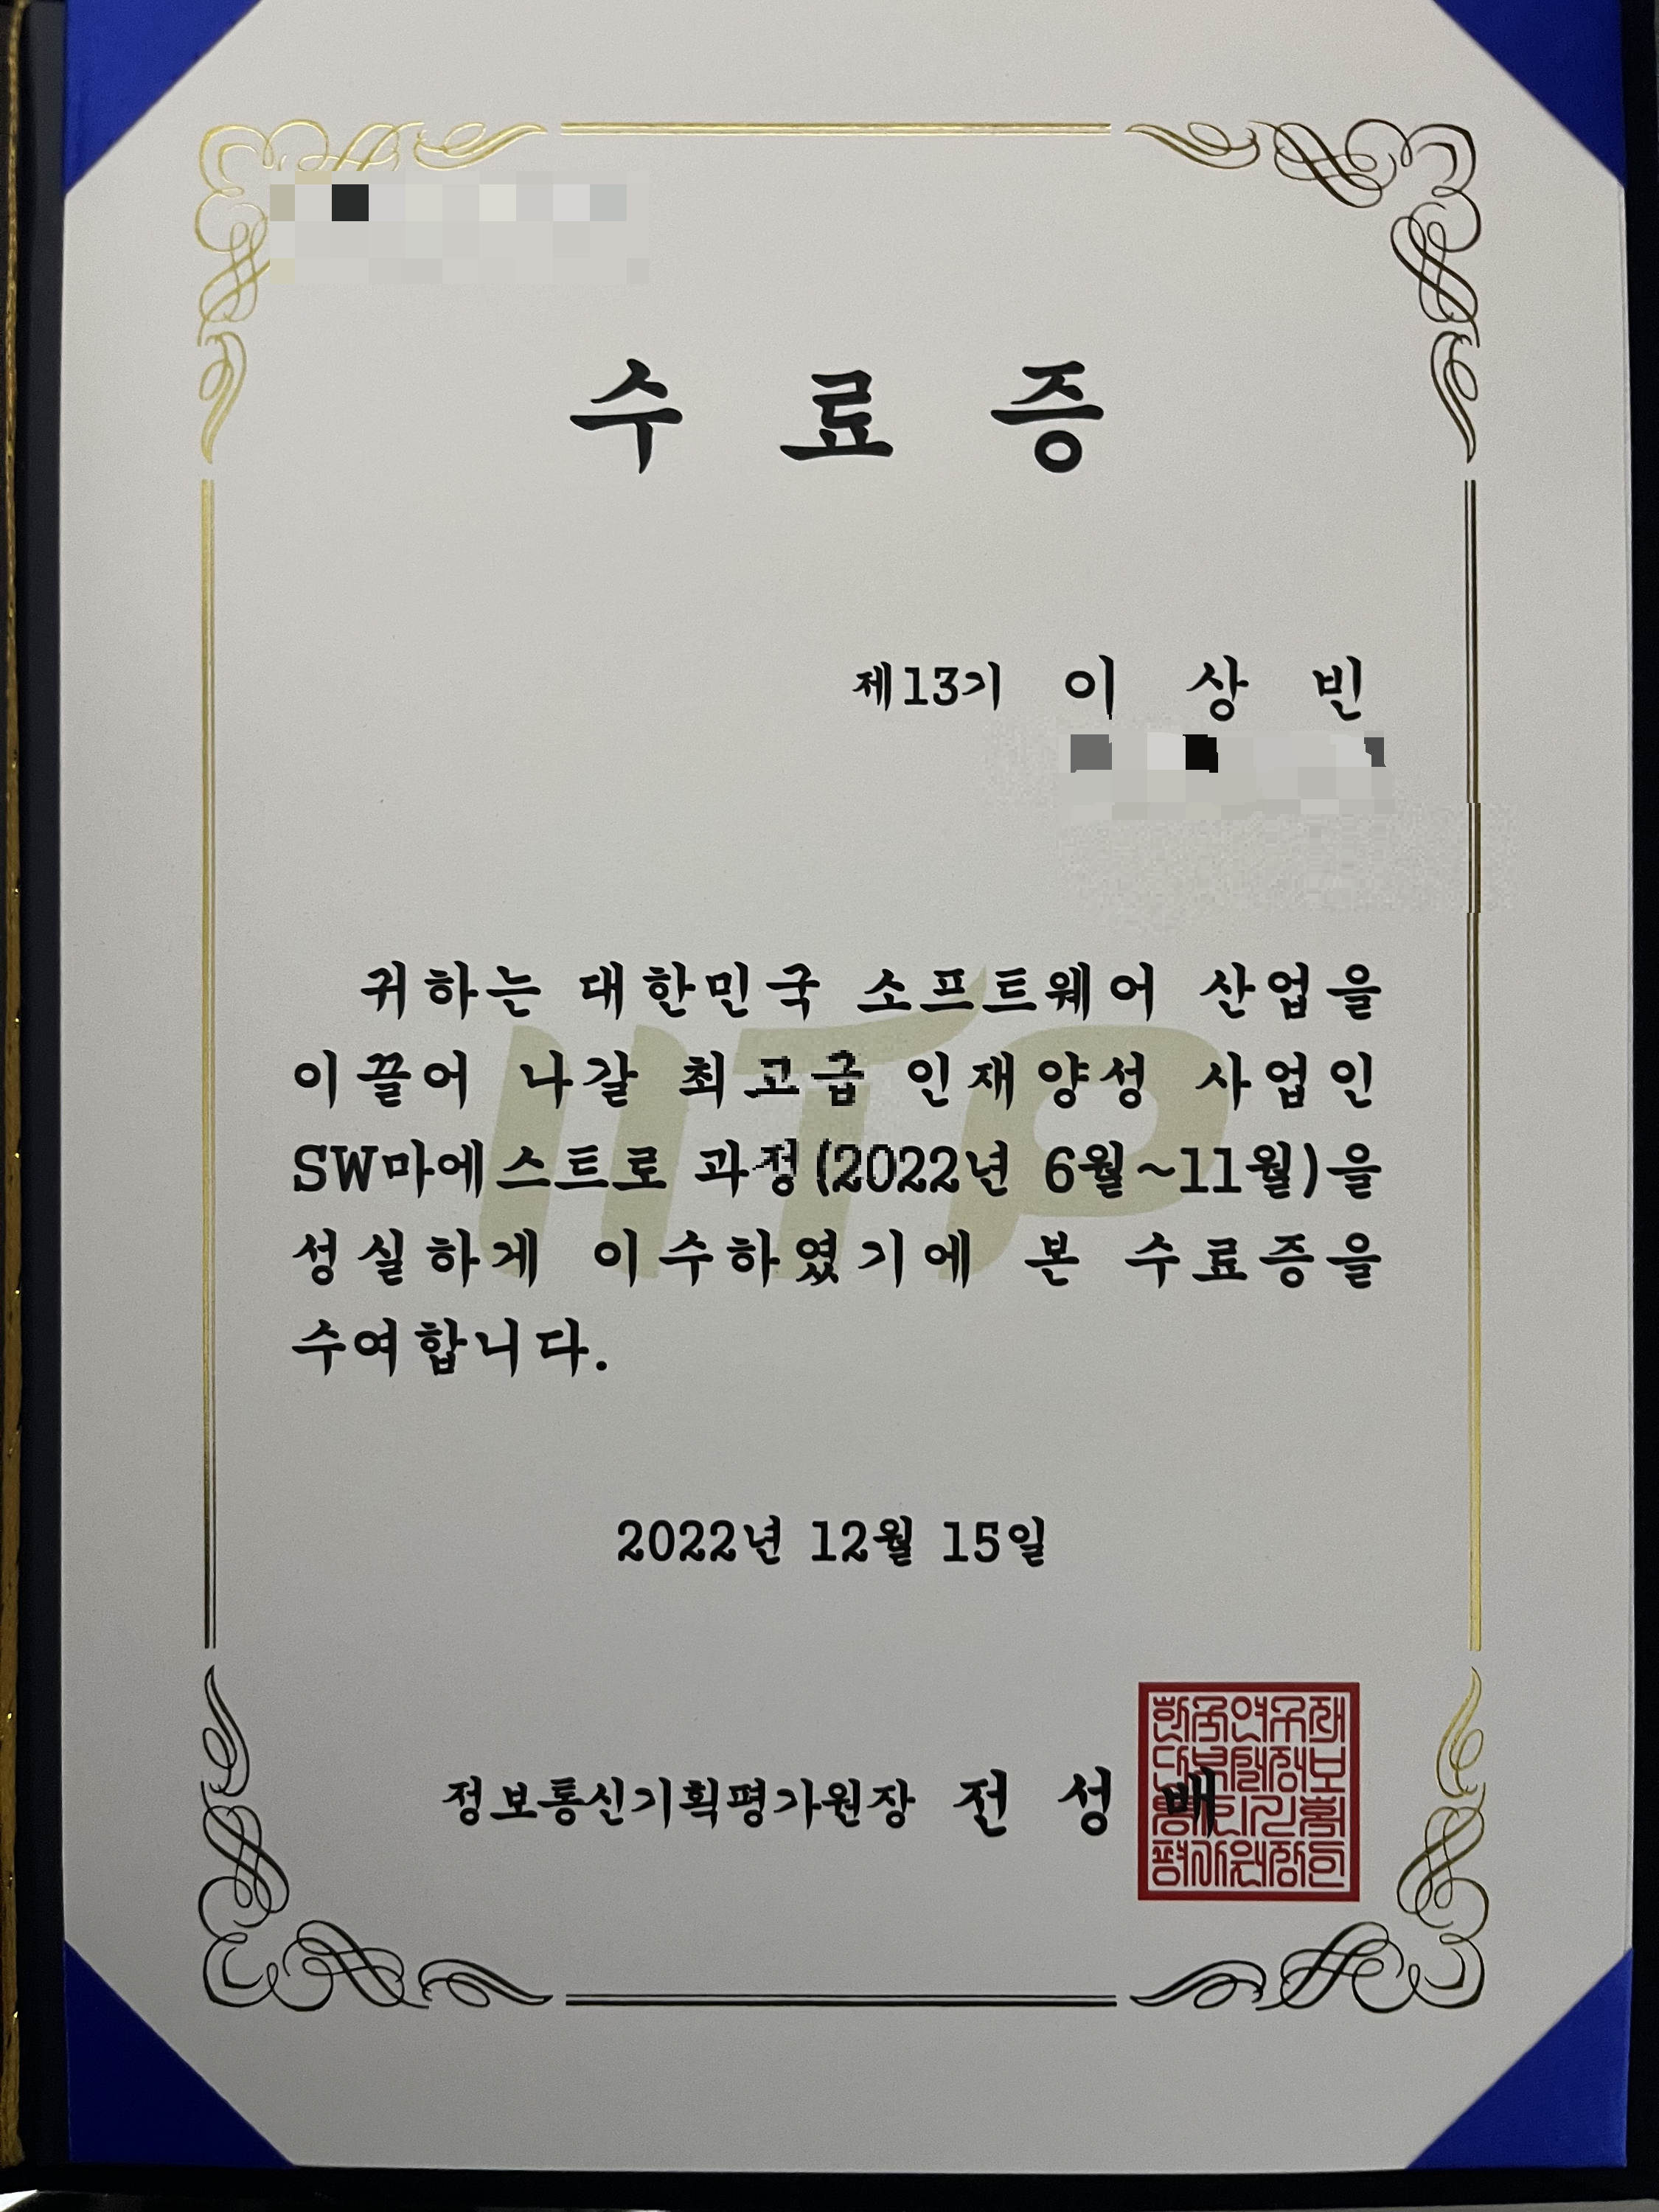 수 료 증
제13기 이 상 빈
귀하는 대한민국 소프트웨어 산업을
이끌어 나갈 최고급 인재양성 사업인
SW마에스트로 과정(2022년 6월~11월)을
성실하게 이수하였기에 본 수료증을
수여합니다.
IITP
2022년 12월 15일
정보통신기획평가원장 전 성 배